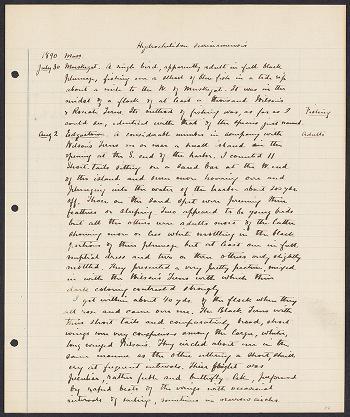 Hydrochelidon surinamensis
1890 Mass
July 30 Muskeget. A single bird, apparently adult in full black
plumage, fishing over a school of blue fish in a tide rip
about a mile to the W. of Muskeget. It was in the
midst of a flock of at least a thousand Wilson's
& Roseate Terns. Its method of fishing was, as far as I
could see, identical with that of the species just named. Fishing
Aug 2 Edgartown. A considerable number in company with Adults
Wilson's Terns on or near a small island in the
opening at the S. end of the harbor. I counted 11
Short-tails sitting on a sand bar at the W. end
of the island and even more hovering over and
plunging into the water of the harbor about 200 yds
off. Those on the sand spit were preening their
feathers or sleeping. Two appeared to be young birds
but all the others were adults most of the latter
showing more or less white mottling in the black
portions of their plumage but at least one in full
nuptial dress and two or three others only slightly
mottled. They presented a very pretty picture, mixed
in with the Wilson's Terns with which their
dark coloring contrasted strongly.
I got within about 40 yds. of the flock when they
all rose and came over me. The Black Terns with
their short tails and comparatively broad, short
wings were very conspicuous among the larger, whiter,
long winged Wilson's. They circled about me in the
same manner as the others uttering a short, shrill
cry at frequent intervals. Their flight was
peculiar, rather feeble and butterfly like, performed
by rapid beats of the wings with occasional
intervals of sailing, sometimes in narrow circles